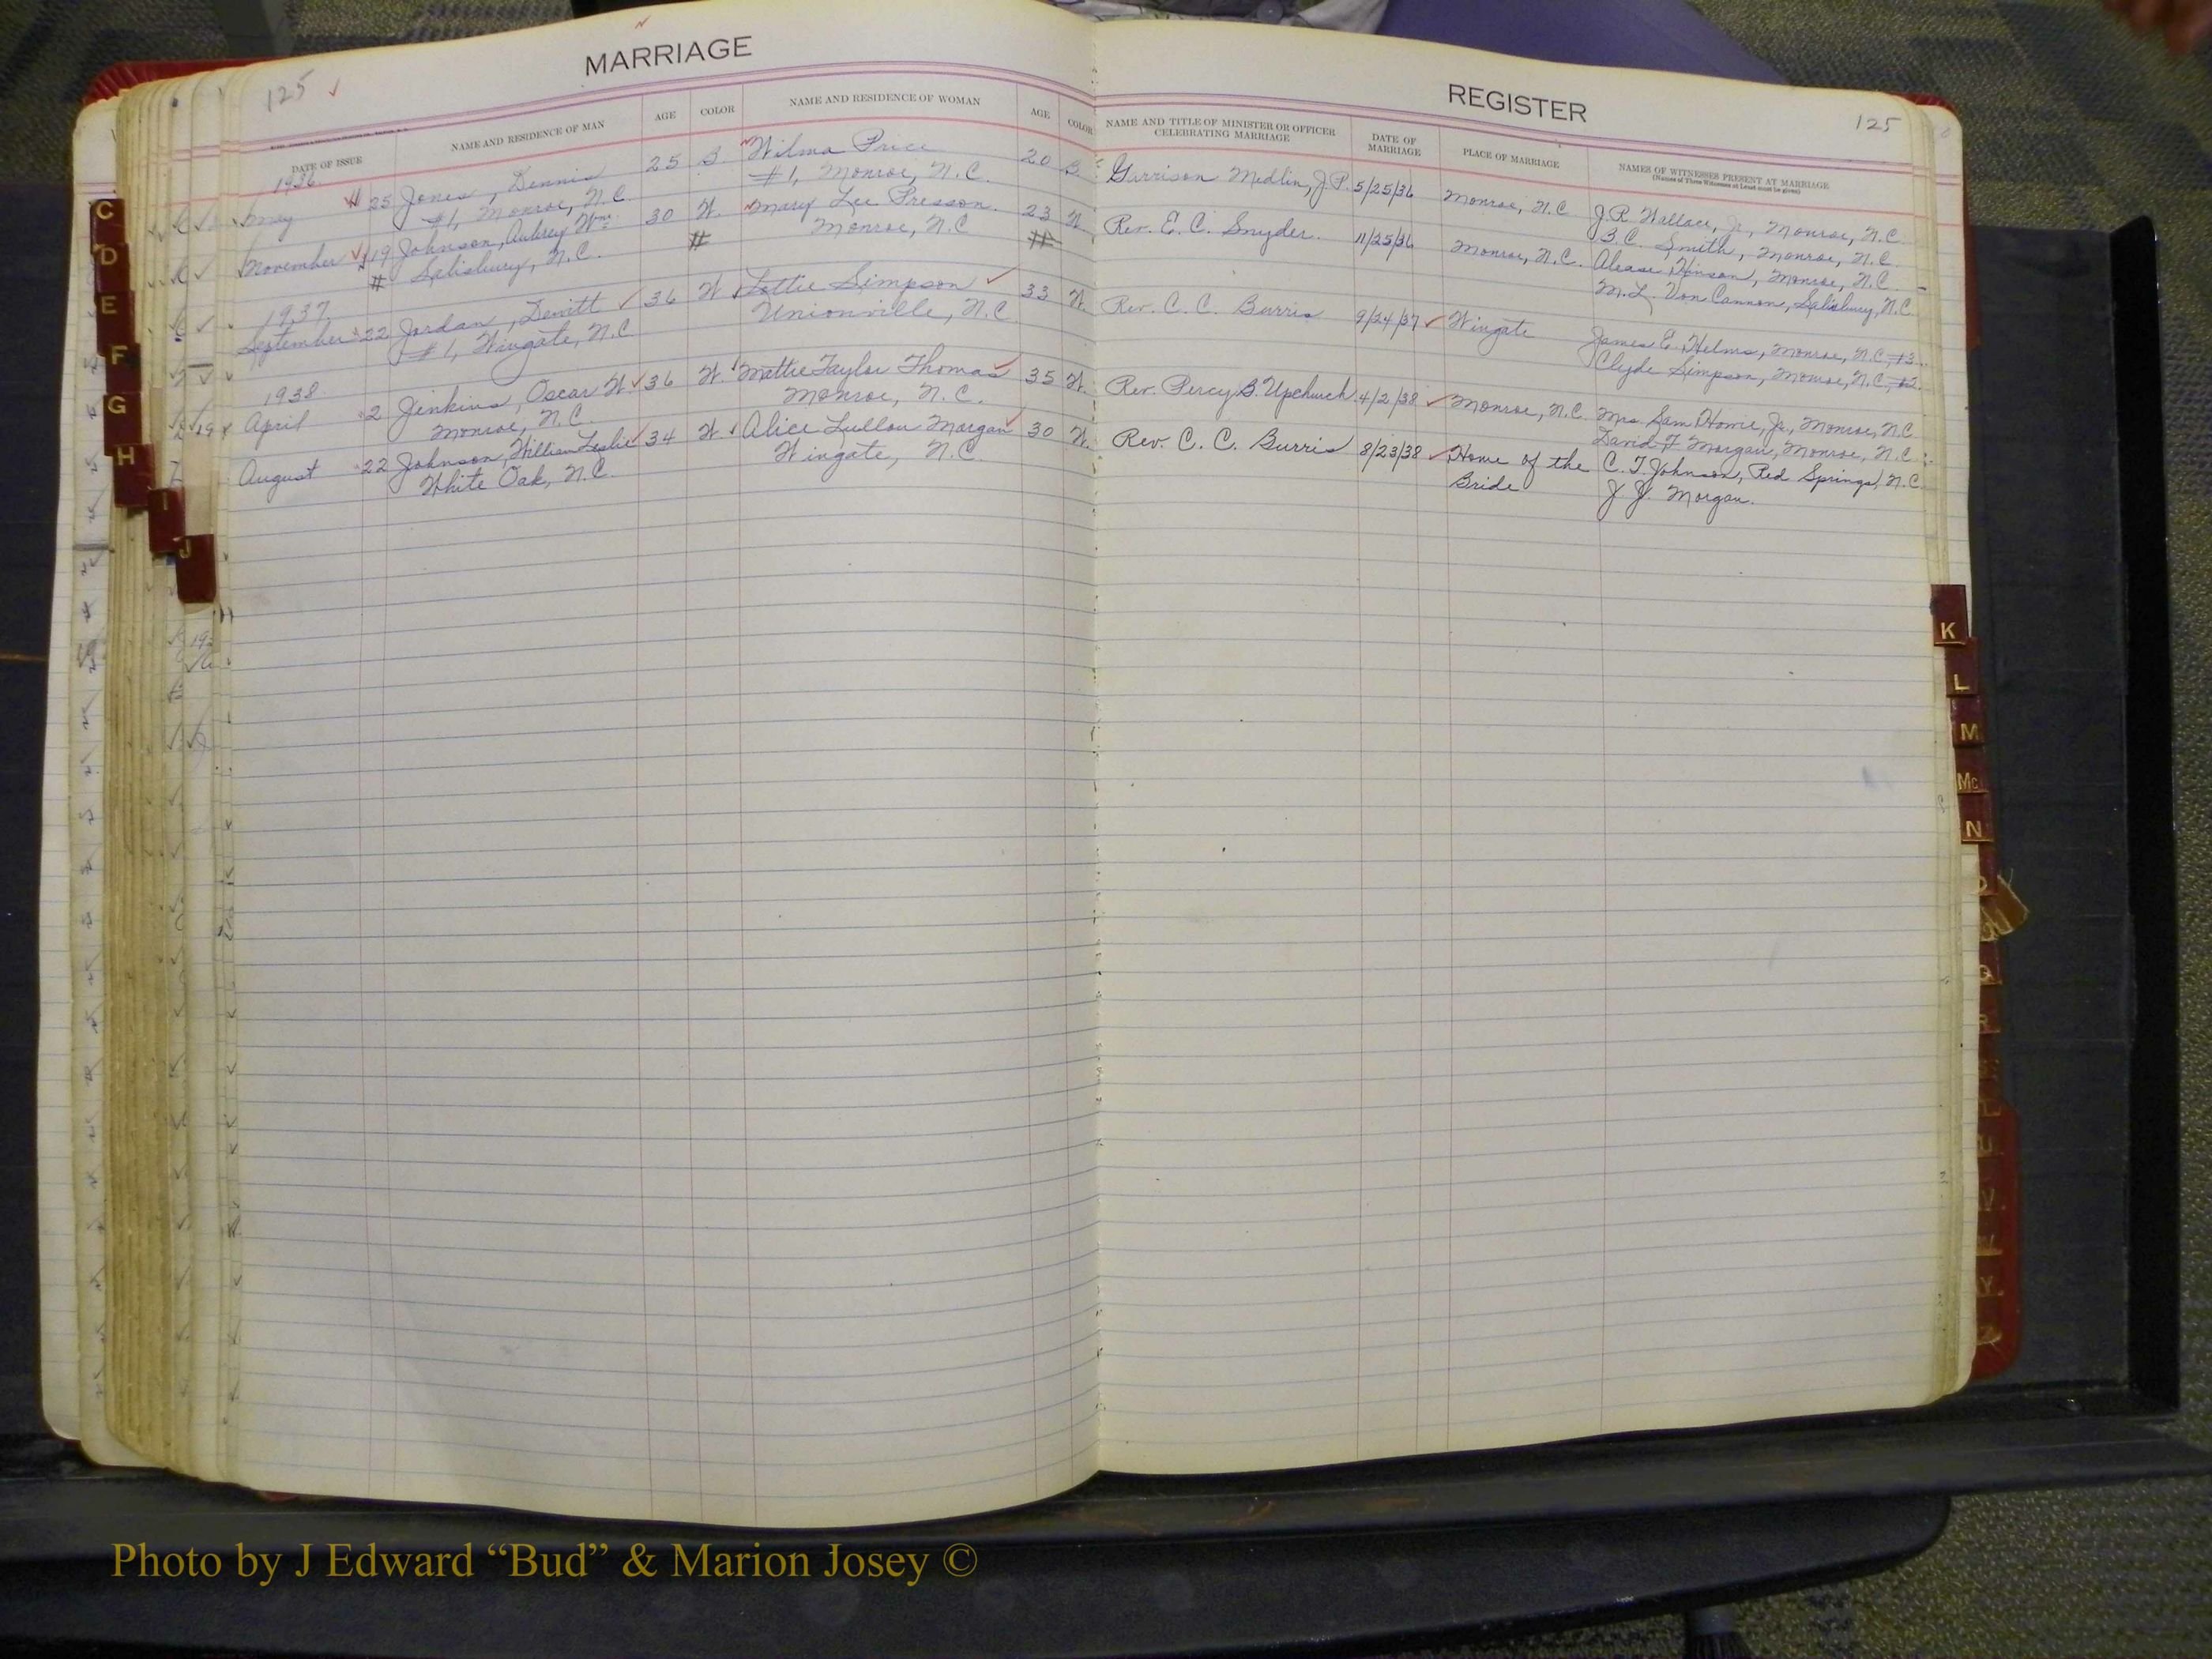 MARRIAGE
125
DATE OF ISSUE NAME AND RESIDENCE OF MAN AGE COLOR NAME AND RESIDENCE OF WOMAN AGE COLOR
1936
May 25 Jones, Dennis 25 B Wilma Price 20 B
#1, Monroe, N.C. #1, Monroe, N.C.
November 19 Johnson, Aubrey Wm. 30 W. Mary Lee Presson 23 W
# Salisbury, N.C. # Monroe, N.C #
1937
September 22 Jordan, Dewitt 36 W Lottie Simpson 33 W.
#1, Wingate, N.C Unionville, N.C
1938
April 2 Jenkins, Oscar W. 36 W. Mattie Taylor Thomas 35 W.
Monroe, N.C. Monroe, N.C.
August 22 Johnson, William Leslie 34 W. Alice Lullou Morgan 30 W.
White Oak, N.C. Wingate, N.C.
REGISTER
125
NAME AND TITLE OF MINISTER OR OFFICER CELEBRATING MARRIAGE DATE OF MARRIAGE PLACE OF MARRIAGE NAMES OF WITNESSES PRESENT AT MARRIAGE
(Names of Three Witnesses at Least must be given)
Garrison Medlin, J.P. 5/25/36 Monroe, N.C. J.R. Wallace, Jr., Monroe, N.C.
B.C. Smith, Monroe, N.C.
Rev. E. C. Snyder. 11/25/36 Monroe, N.C. Alease Hinson, Monroe, N.C.
M.L. Von Cannon, Salisbury, N.C.
Rev. C. C. Burris 9/24/37 Wingate James E. Helms, Monroe, N.C., #3
Clyde Simpson, Monroe, N.C., #2.
Rev. Percy B. Upchurch 4/2/38 Monroe, N.C. Mrs Sam Howie, Jr., Monroe, N.C.
David F Morgan, Monroe, N.C.
Rev. C. C. Burris 8/23/38 Home of the C. T. Johnson, Red Springs, N.C.
Bride J. J. Morgan.
C
D
E
F
G
H
I
J
K
L
M
Mc
N
Q
R
U
V
W
Y
Photo by J Edward “Bud” & Marion Josey ©